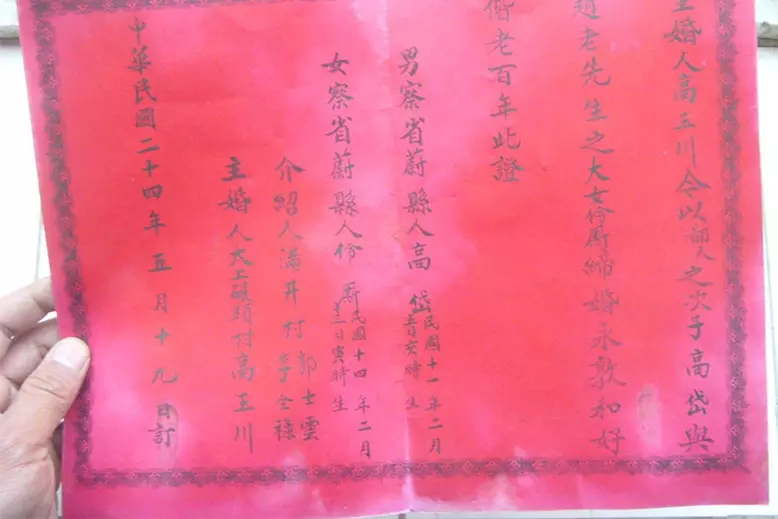 主婚人高玉川今以鄙人之次子高岱與
趙老先生之大女伶斯締婚永敦和好
偕老百年此證
男察省蔚縣人高岱民國十一年二月
五日亥時生
女察省蔚縣人伶斯民國十四年二月
十三日寅時生
介紹人滿井村郭士雲
李全祿
主婚人大上碾頭村高玉川
中華民國二十四年五月十九日訂